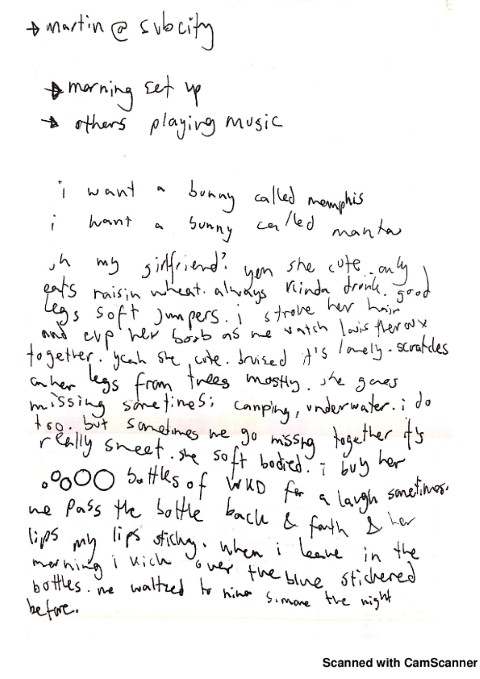 → martin @ subcity
→ morning set up
→ others playing music
i want a bunny called memphis
i want a bunny called manta
oh my girlfriend? yeh she cute. only
eats raisin wheat. always kinda drunk. good
legs soft jumpers. i stroke her hair
and cup her boob as we watch louis theroux
together. yeah she cute. bruised it's lovely. scratches
on her legs from trees mostly. she goes
missing sometimes; camping, underwater. i do
too. but sometimes we go missing together it's
really sweet. she soft bodied. i buy her
bottles of WKD for a laugh sometimes.
we pass the bottle back & forth & her
lips my lips sticky. when i leave in the
morning i kick over the blue stickered
bottles. we waltzed to nina simone the night
before.
Scanned with CamScanner